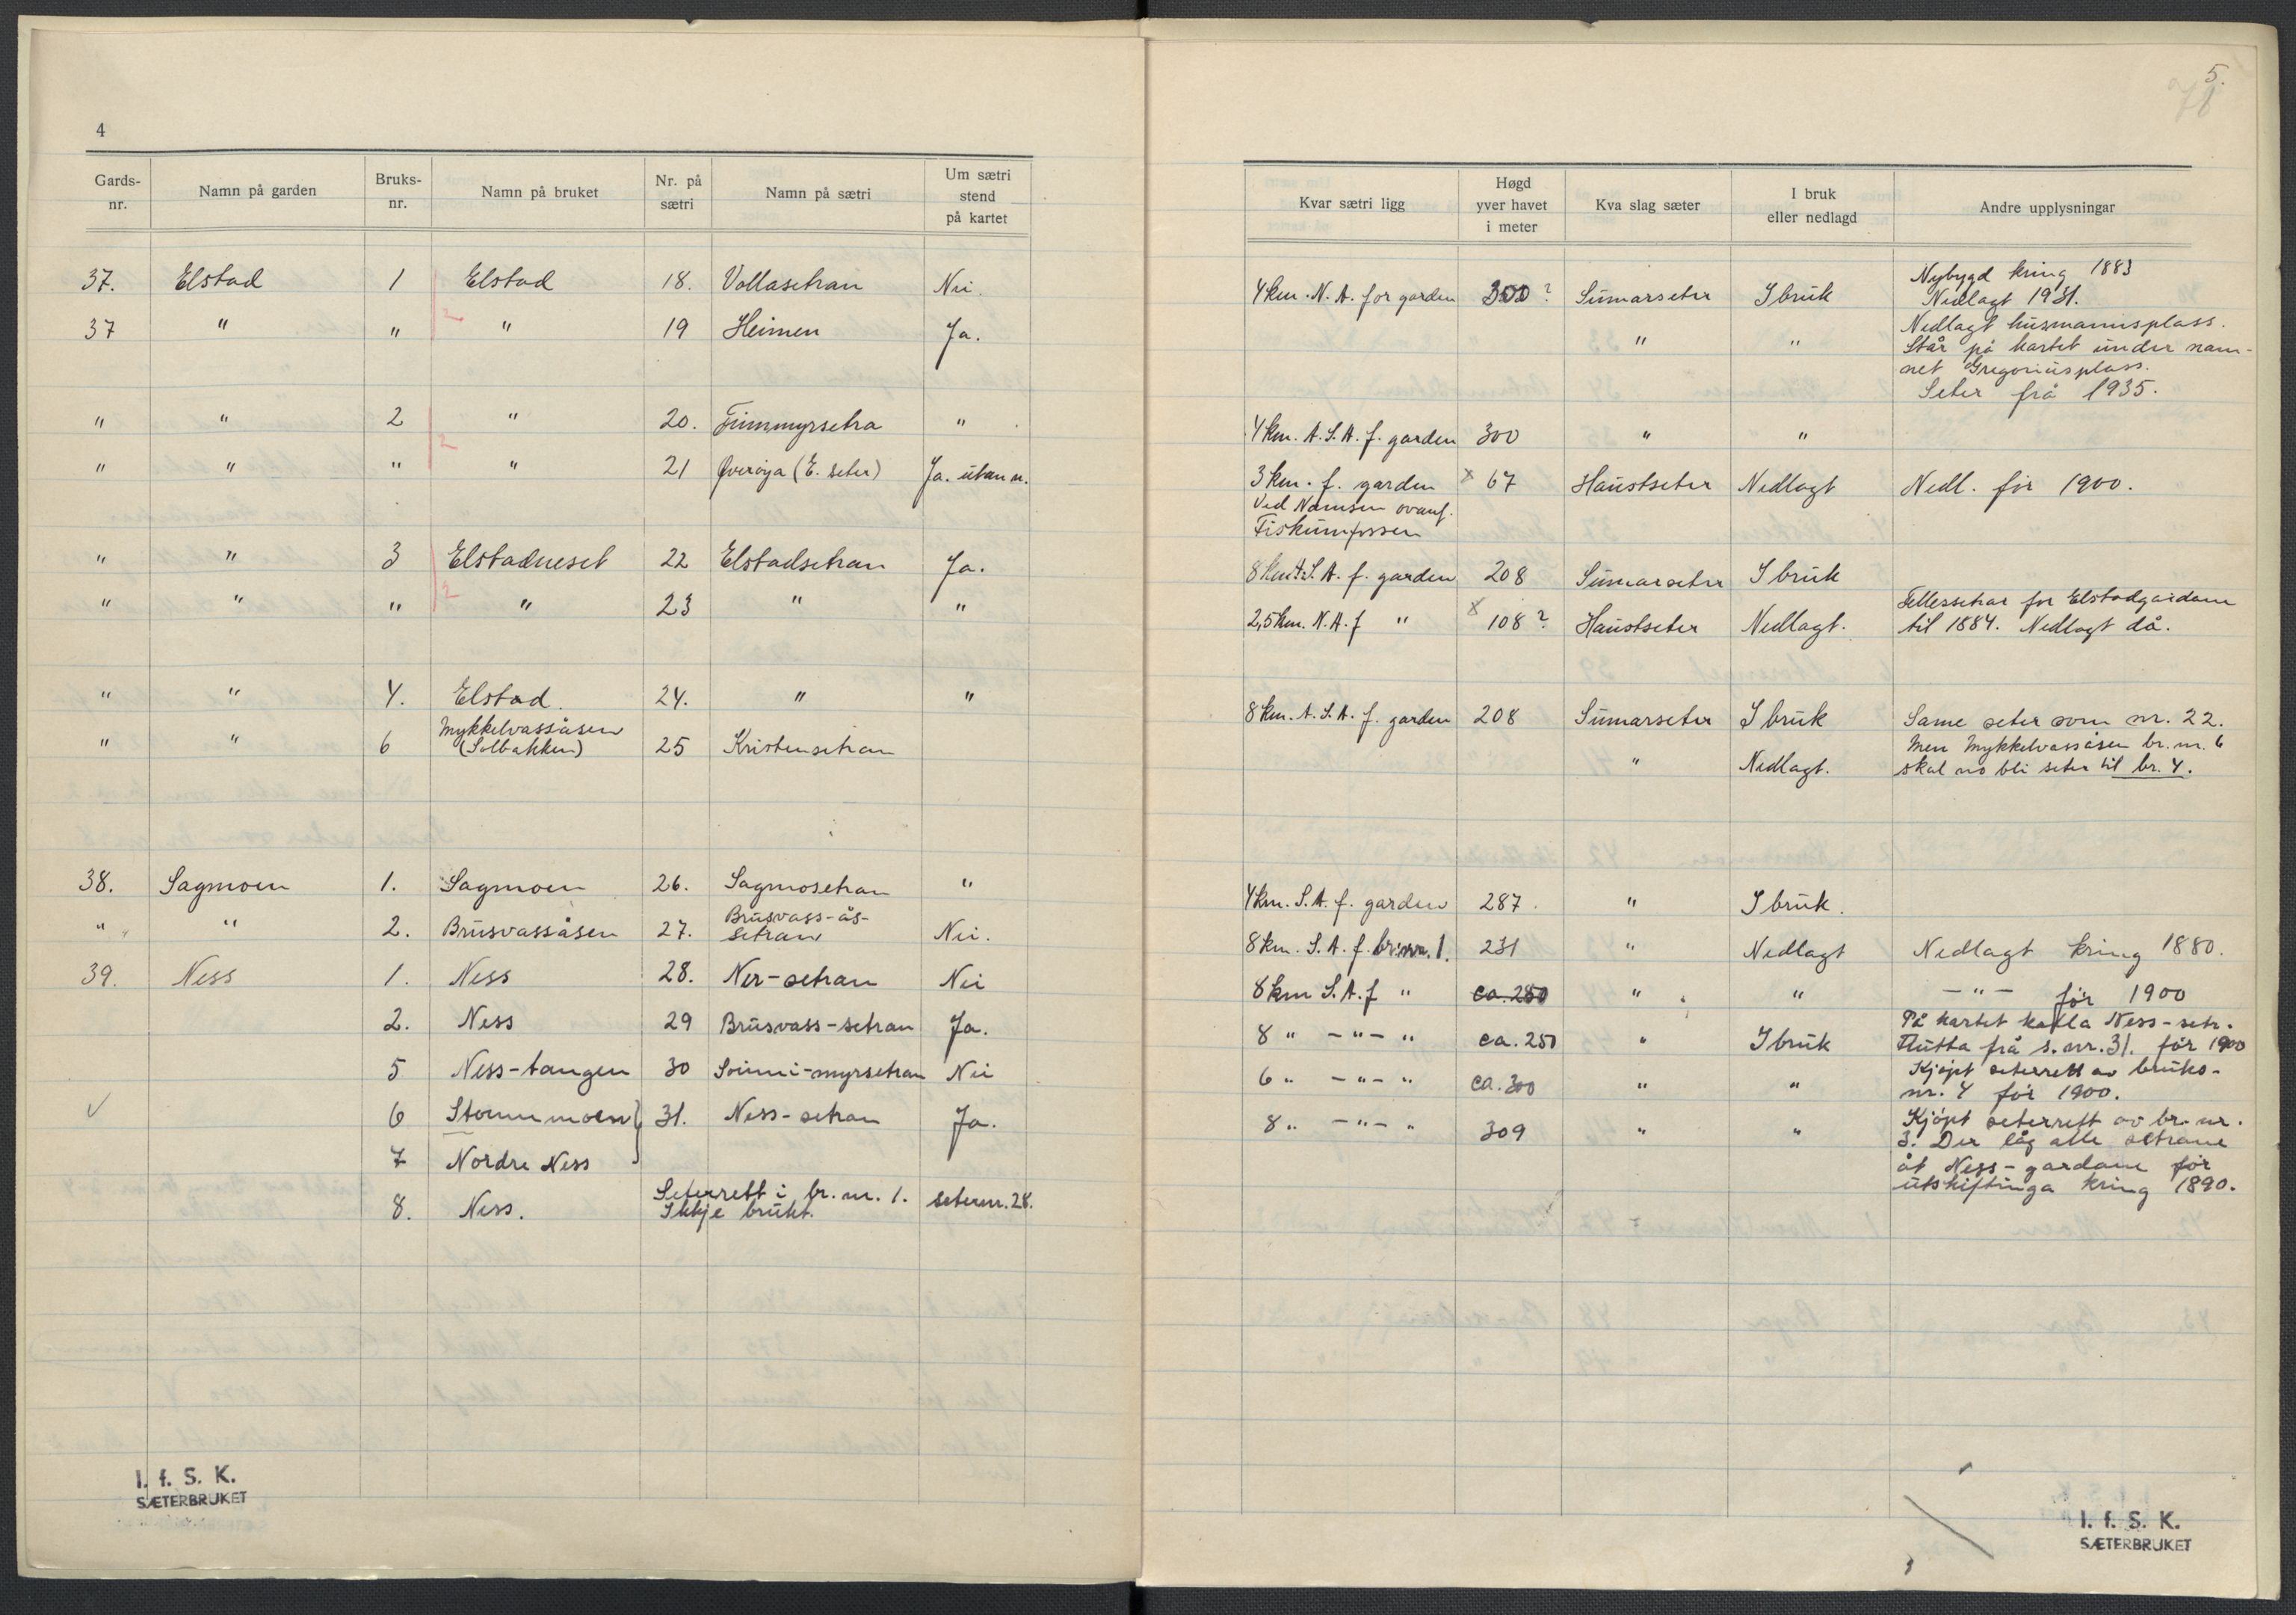 4
Gards-nr. Namn på garden Bruks-nr. Namn på bruket Nr. på sætri Namn på sætri Um sætri stend på kartet
37. Elstad 1 Elstad 18. Vollasetran Nei.
37 " " 2 " 19 Heimen Ja.
" " 2 " 20. Finnmyrsetra "
" " " 2 " 21 Øverøya (E. seter) Ja. utan n.
" " 3 Elstadneset 22 Elstadsetran Ja.
" " " 2 " 23 " "
" " 4. Elstad. 24. " "
" " 6 Mykkelvassåsen
(Solbakken) 25 Kristensetran
38. Sagmoen 1. Sagmoen 26. Sagmosetran "
" " 2. Brusvassåsen 27. Brusvass-ås-
setran Nei.
39. Ness 1. Ness 28. Ner-setran Nei
2. Ness 29 Brusvass-setran Ja.
5 Ness-tangen 30 -myrsetran Nei
6 31. Ness-setran Ja.
7 Nordre Ness
8. Ness. Seterrett i br. nr. 1. seternr. 28.
Ikkje brukt.
I. f. S. K.
SÆTERBRUKET
5.
78
Kvar sætri ligg Høgd yver havet i meter Kva slag sæter I bruk eller nedlagd Andre upplysningar
4 km. N.A. for garden 300 ? Sumarseter I bruk Nybygd kring 1883
Nedlagt 1931.
" " Nedlagt husmannsplass.
Står på kartet under nam-
net Gregoriusplass.
Seter frå 1935.
4 km. A.S.A. f. garden 300 " "
3 km. f. garden x 67 Haustseter Nedlagt Nedl. før 1900.
Ved Namsen ovanf.
Fiskumfossen
8 km A.S.A. f. garden 208 Sumarseter I bruk
2,5 km. N.A. f " x 108 ? Haustseter Nedlagt. Fellessetrar for Elstadgardane
til 1884. Nedlagt då.
8 km. A.S.A. f. garden 208 Sumarseter I bruk Same seter som nr. 22.
" Nedlagt. Men Mykkelvassåsen br. nr. 6
skal no bli seter til br. 4.
4 km. S.A. f. garden 287. " I bruk.
8 km. S.A. f. br. nr. 1. 231 " Nedlagt Nedlagt kring 1880.
8 km S.A. f " ca. 280 " " -"- før 1900
8 " -"- " ca. 250 " I bruk På kartet kalla Ness-setr.
Flutta frå s. nr. 31. før 1900
6 " -"- " ca. 300 " " Kjøpt seterrett av bruks-
nr. 4 før 1900.
8 " -"- " 309 " " Kjøpt seterrett av br. nr.
3. Der låg alle setrane
åt Ness-gardane før
utskiftinga kring 1890.
I. f. S. K.
SÆTERBRUKET